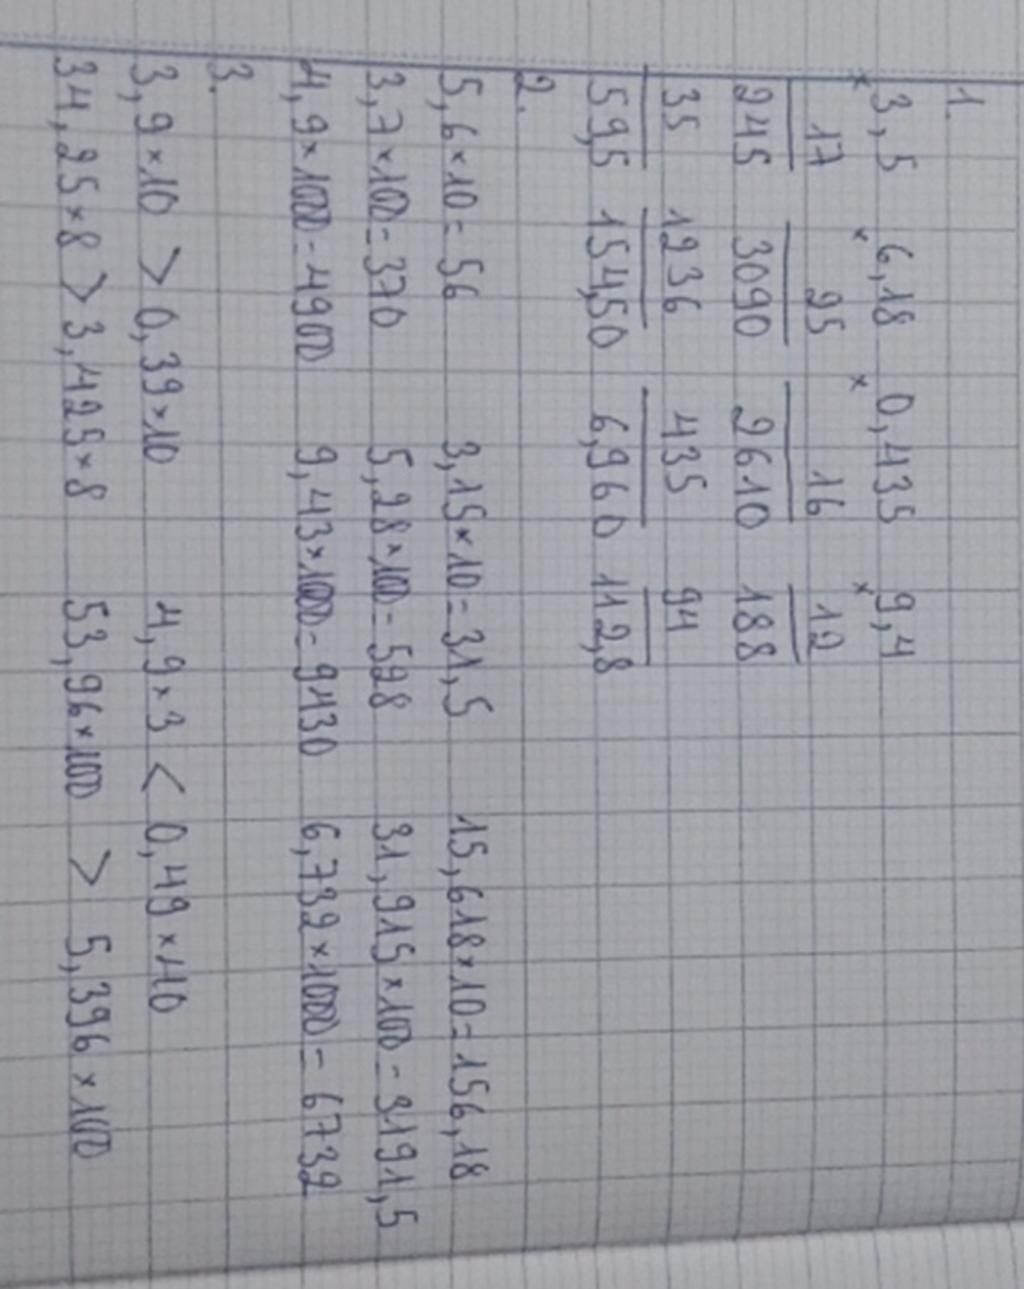 1.
× 3,5 × 6,18 × 0,435 × 9,4
17 25 16 12
245 3090 2610 188
35 1236 435 94
59,5 154,50 6,960 112,8
2.
5,6×10=56 3,15×10=31,5 15,618×10=156,18
3,7×100=370 5,28×100=528 31,915×100=3191,5
4,9×1000=4900 9,43×1000=9430 6,732×1000=6732
3.
3,9×10 > 0,39×10 4,9×3 < 0,49×40
34,25×8 > 3,425×8 53,96×100 > 5,396×100